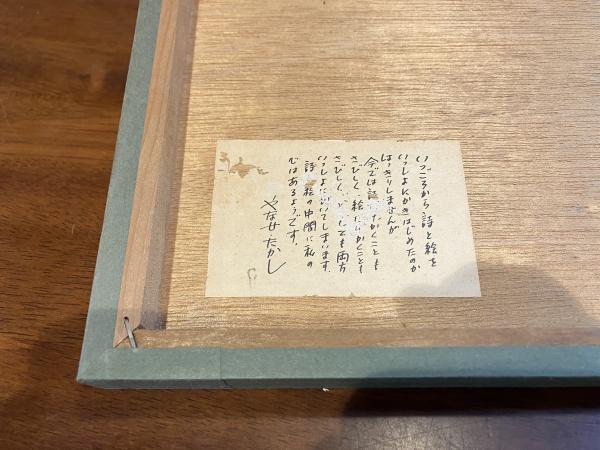 いつごろから、詩と絵を
いっしょにかきはじめたのか
はっきりしませんが
今では詩だけかくことも
さびしく、絵だけかくことも
さびしく、どうしても両方
いっしょに かいてしまいます。
詩と絵の中間に私の
はあるようです。
やなせ・たかし